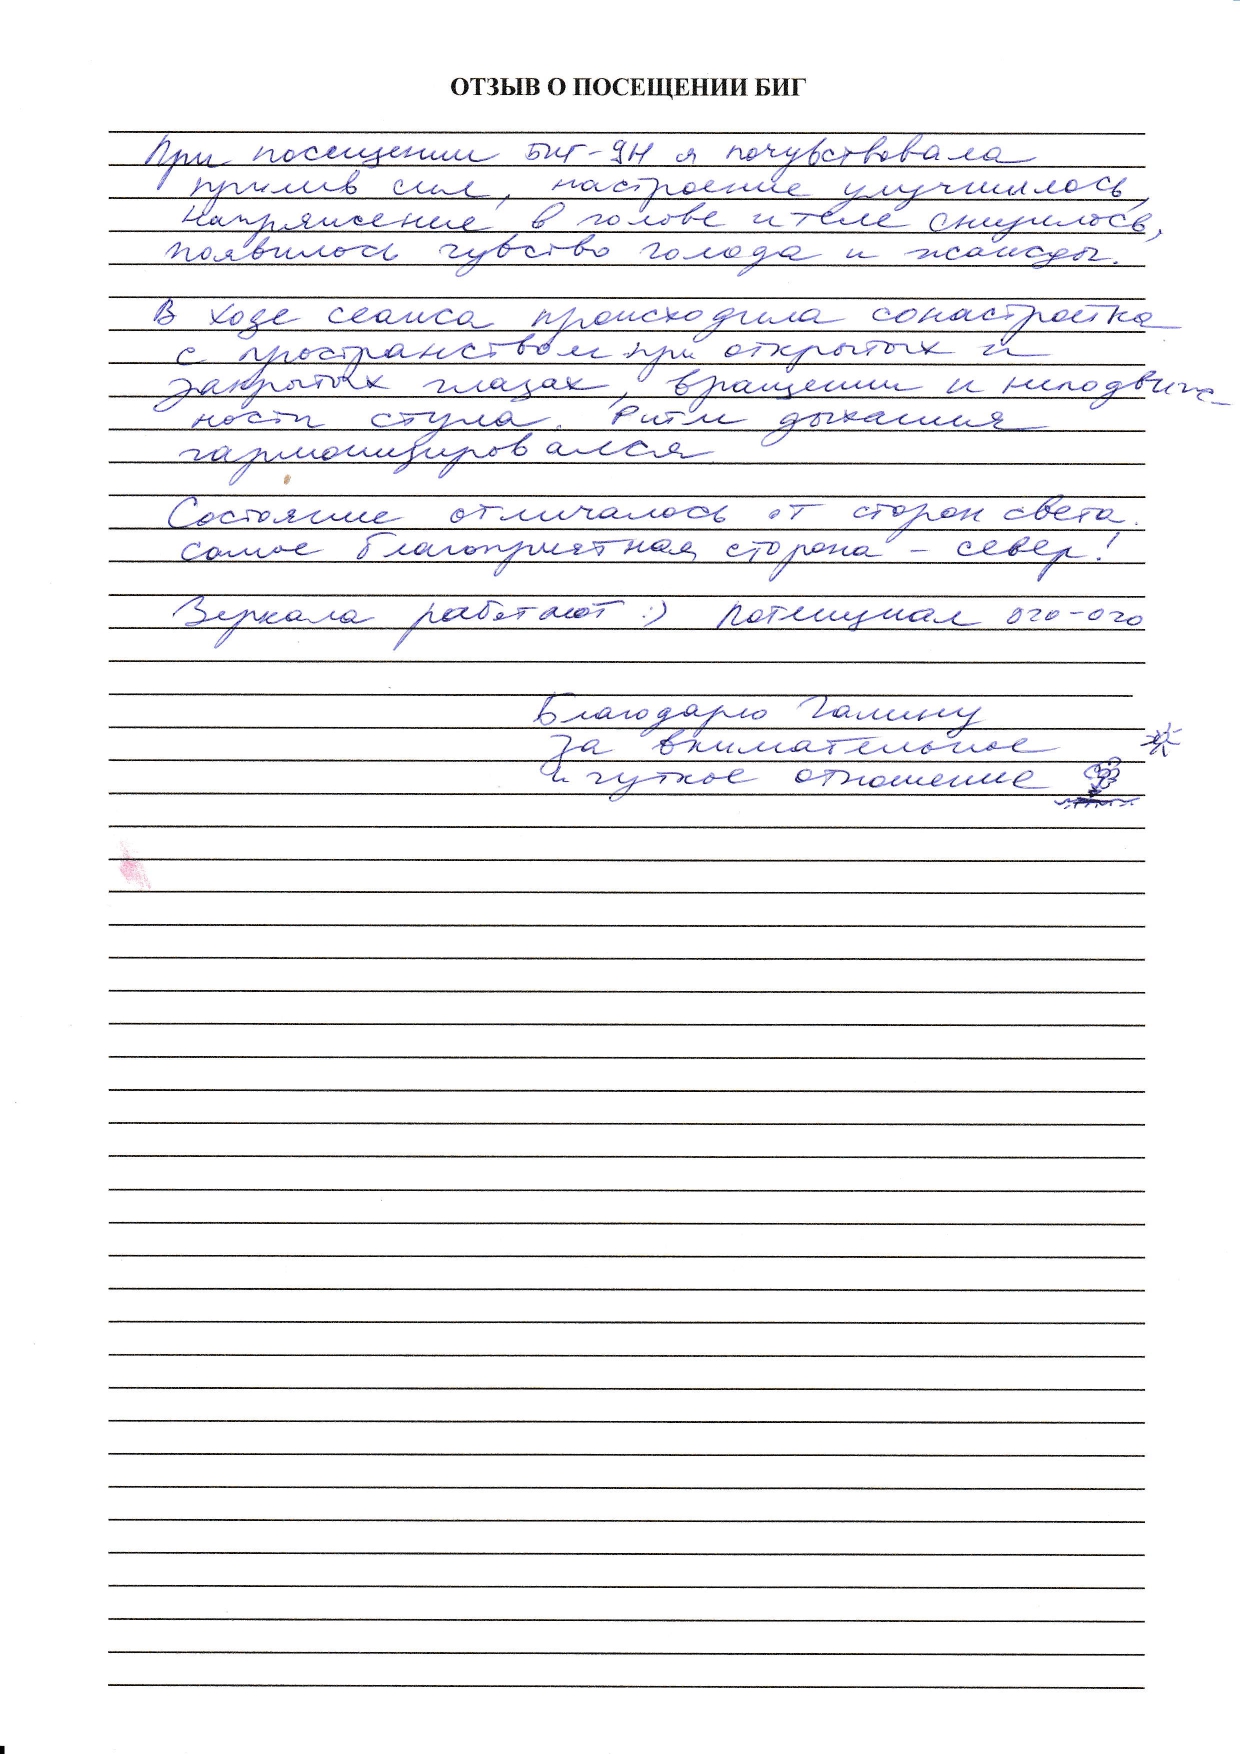 ОТЗЫВ О ПОСЕЩЕНИИ БИГ
При посещении БИГ-9Н я почувствовала
прилив сил, настроение улучшилось,
напряжение в голове и теле снизилось,
появилось чувство голода и жажды.
В ходе сеанса происходила сонастройка
с пространством при открытых и
закрытых глазах, вращении и неподвиж-
ности стула. Ритм дыхания
гармонизировался
Состояние отличалось от сторон света.
Самое благоприятная сторона - север!
Зеркала работают :) Потенциал ого-ого
Благодарю Галину
за внимательное
и чуткое отношение